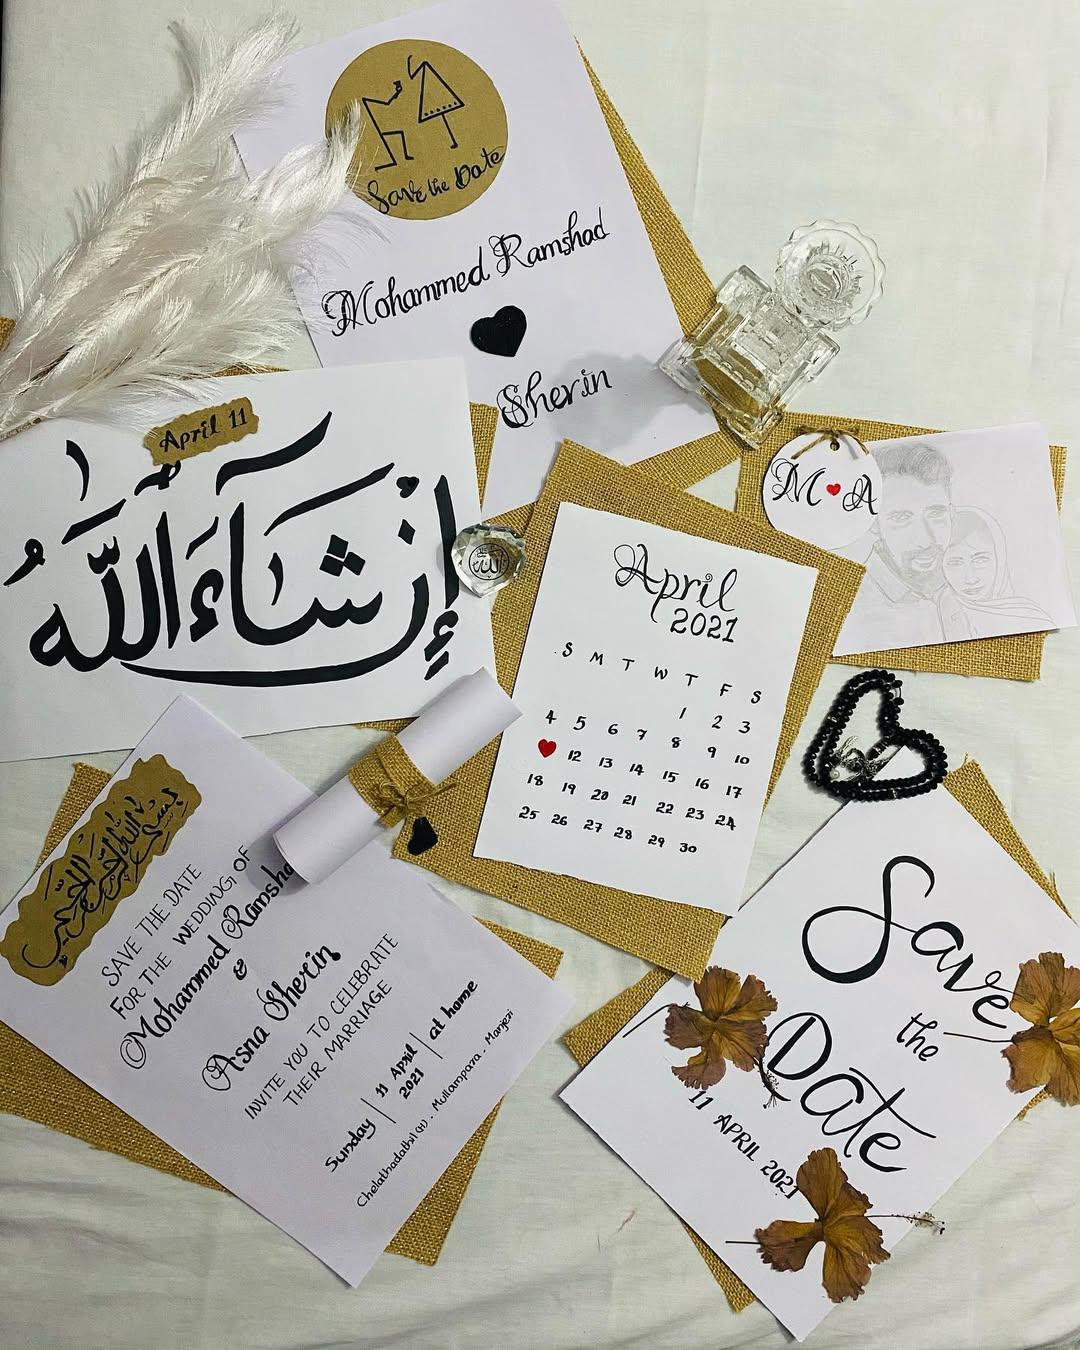 Save the Date
Mohammed Ramshad
Sherin
April 11
إِنْ شَاءَ اللَّهُ
الله
M ♥ A
April
2021
S M T W T F S
1 2 3
4 5 6 7 8 9 10
♥ 12 13 14 15 16 17
18 19 20 21 22 23 24
25 26 27 28 29 30
بسم الله الرحمن الرحيم
SAVE THE DATE
FOR THE WEDDING OF
Mohammed Ramsha
&
Asna Sherin
INVITE YOU TO CELEBRATE
THEIR MARRIAGE
Sunday | 11 April 2021 | at home
Chelathadathil(H) . Mullampara . Manjeri
Save
the
Date
11 APRIL 2021